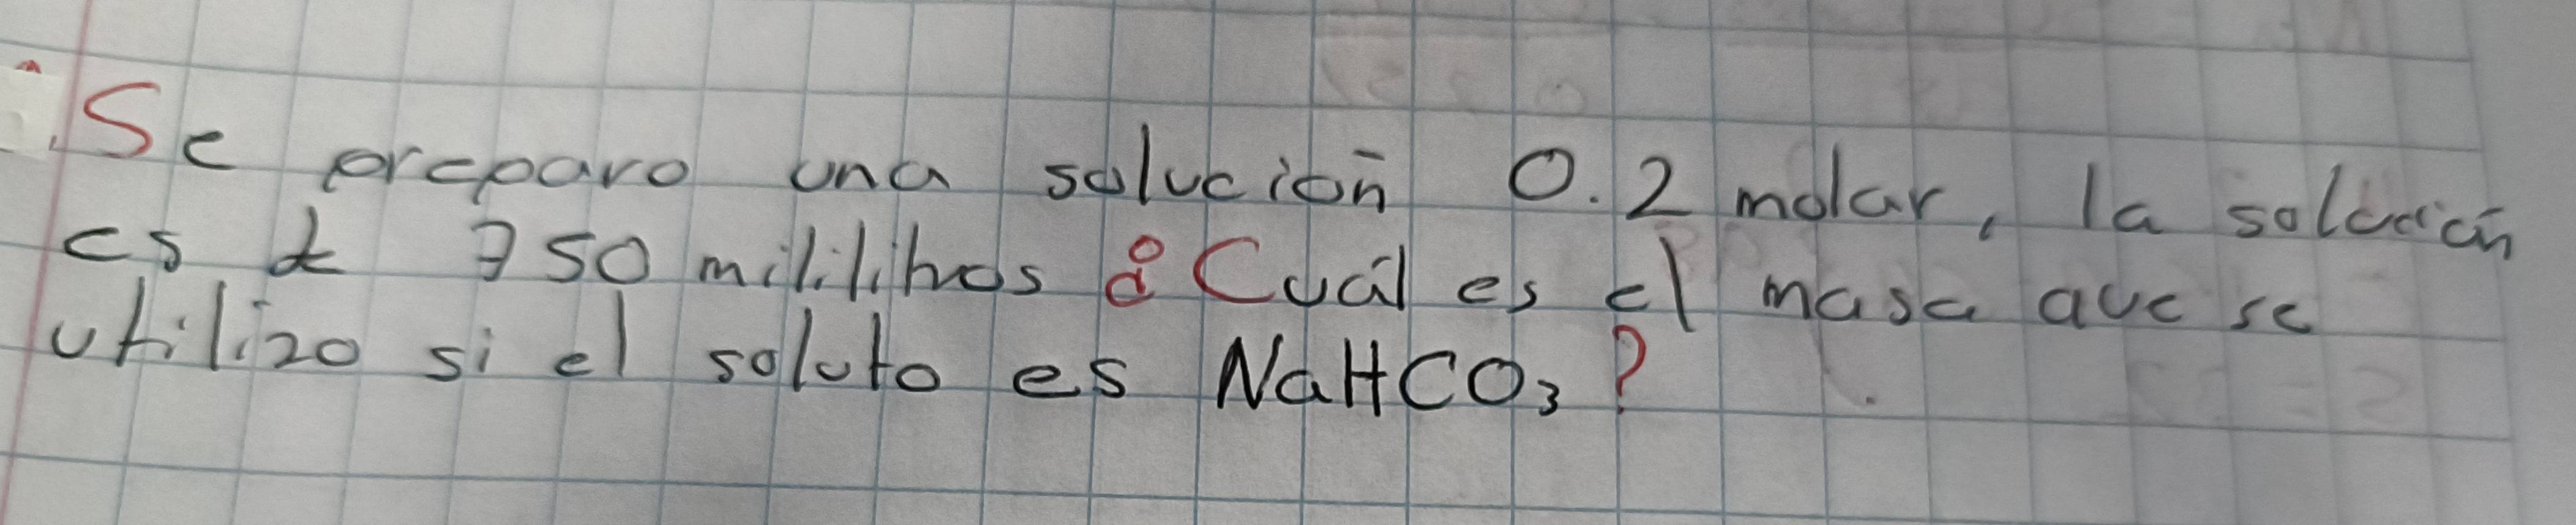 Se preparo una solución 0.2 molar, la solución
es de 750 mililitros ¿Cuál es el masa que se
utilizo si el soluto es NaHCO₃?